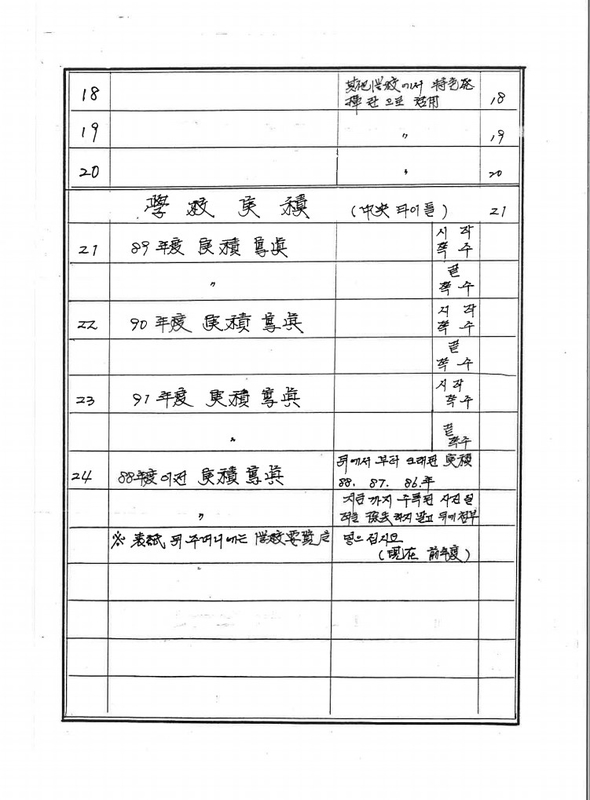 18 其他 学校에서 特色発
揮란으로 活用 18
19 〃 19
20 〃 20
学校 実積 (中央 타이틀) 21
21 89年度 実積 寫眞 시작
쪽수
〃 끝
쪽수
22 90年度 実積 寫眞 시작
쪽수
끝
쪽수
23 91年度 実積 寫眞 시작
쪽수
〃 끝
쪽수
24 88年度이전 実積 寫眞 뒤에서 부터 오래된 実積
88. 87. 86.年
〃 지금까지 수록된 사진 실
적을 하지말고 뒤에 첨부
※ 表紙 뒤 주머니에는 学校要覧 넣으십시요
(現在 前年度)